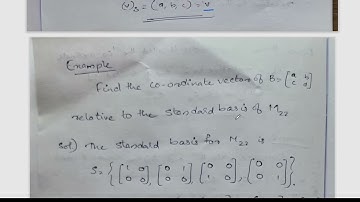 (v)s = (a, b, c) = v
Example
Find the co-ordinate vector of B = [a b
c d]
relative to the standard basis of M22
Sol) The standard basis for M22 is
S = { [1 0
0 0], [0 1
0 0], [0 0
1 0], [0 0
0 1] }